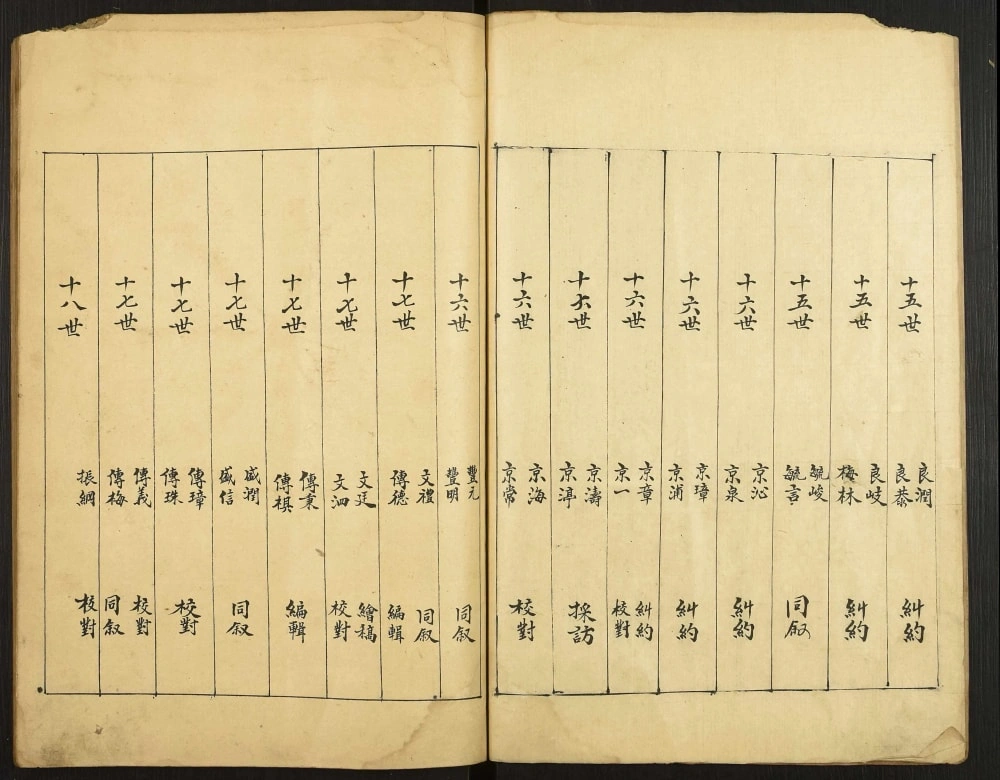 十五世 良潤 良恭 糾約
十五世 良岐 梅林 糾約
十五世 毓峻 毓言 同叙
十六世 京沁 京泉 糾約
十六世 京璋 京浦 糾約
十六世 京章 京一 糾約 校對
十六世 京濤 京渟 採訪
十六世 京海 京常 校對
十六世 豐元 豐明 同叙
十七世 文禮 傳德 同叙 編輯
十七世 文廷 文泗 繪稿 校對
十七世 傳秉 傳祺 編輯
十七世 盛潤 盛信 同叙
十七世 傳璋 傳珠 校對
十七世 傳義 傳梅 校對 同叙
十八世 振綱 校對